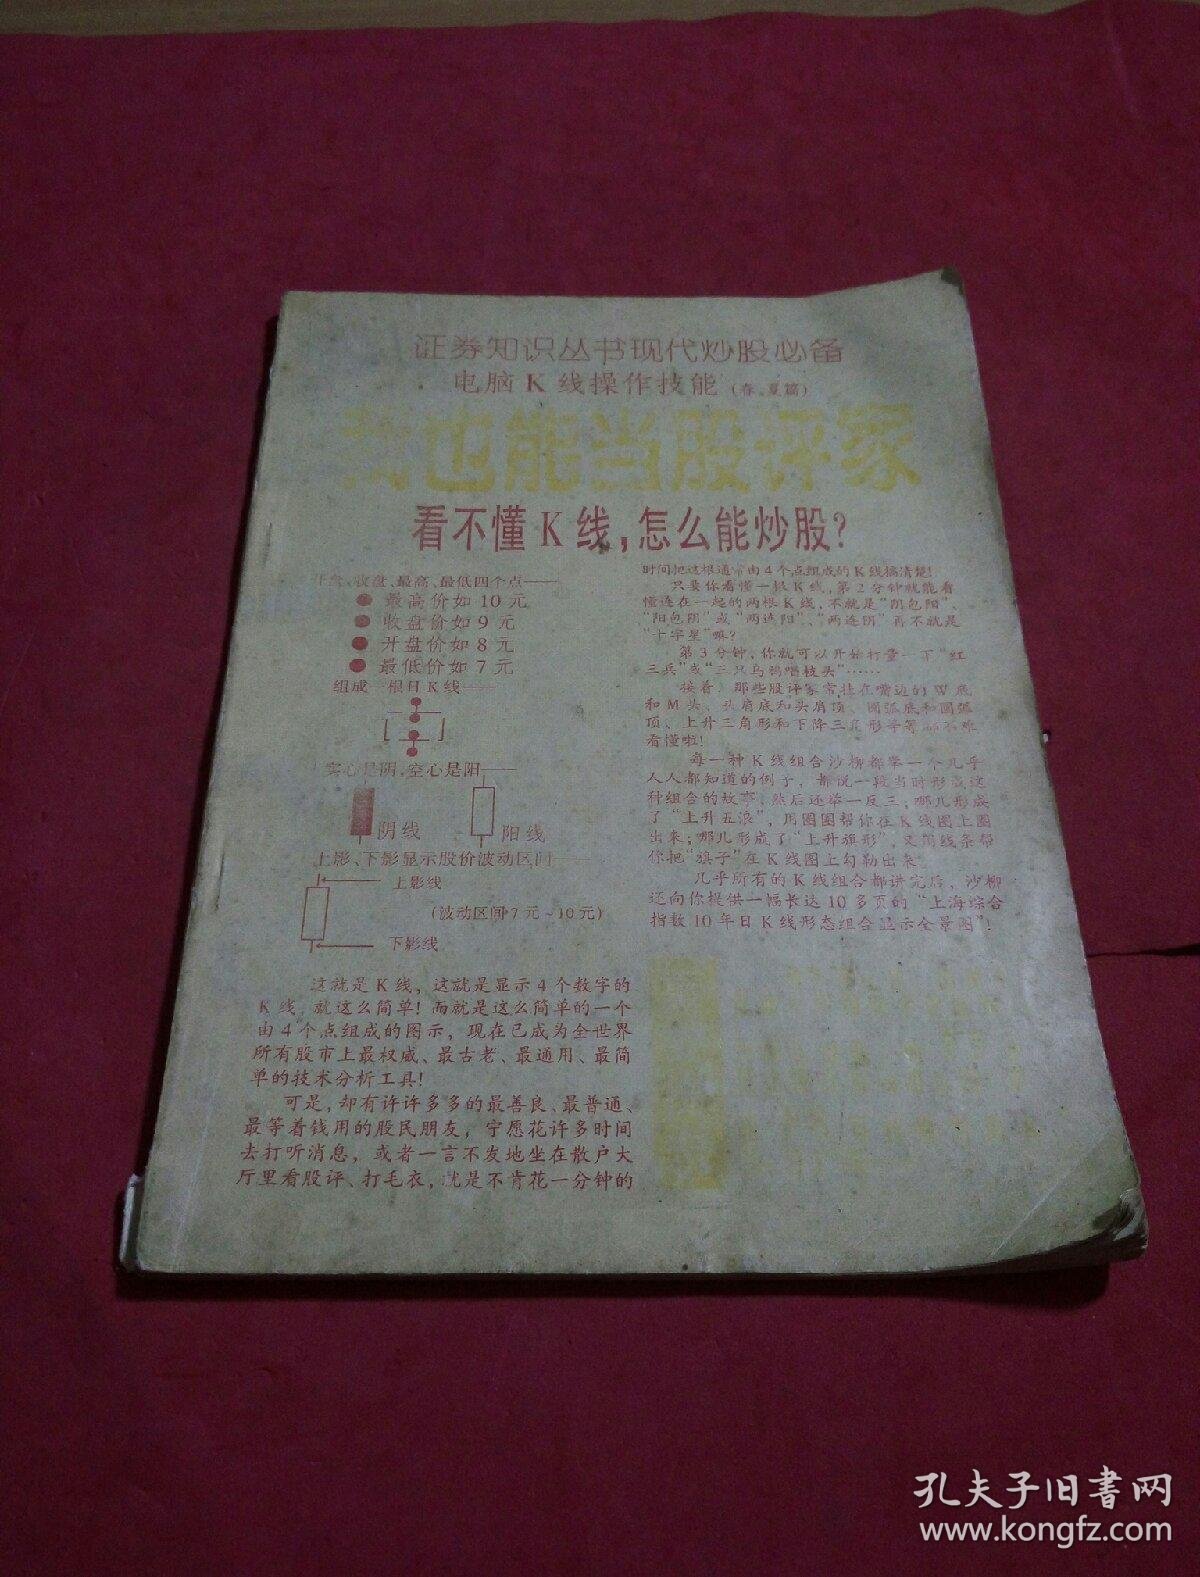 证券知识丛书现代炒股必备
电脑K线操作技能(春、夏篇)
我也能当股评家
看不懂K线,怎么能炒股?
开盘、收盘、最高、最低四个点——
● 最高价如10元
● 收盘价如9元
● 开盘价如8元
● 最低价如7元
组成一根日K线——
实心是阴,空心是阳——
阴线
阳线
上影、下影显示股价波动区间——
上影线
(波动区间7元~10元)
下影线
这就是K线,这就是显示4个数字的
K线,就这么简单!而就是这么简单的一个
由4个点组成的图示,现在已成为全世界
所有股市上最权威、最古老、最通用、最简
单的技术分析工具!
可是,却有许许多多的最善良、最普通、
最等着钱用的股民朋友,宁愿花许多时间
去打听消息,或者一言不发地坐在散户大
厅里看股评、打毛衣,就是不肯花一分钟的
时间把这根通常由4个点组成的K线搞清楚!
只要你看懂一根K线,第2分钟就能看
懂连在一起的两根K线,不就是“阴包阳”、
“阳包阴”或“两连阳”、“两连阴”再不就是
“十字星”嘛?
第3分钟,你就可以开始打量一下“红
三兵”或“三只乌鸦唱枝头”……
接着,那些股评家常挂在嘴边的W底
和M头、头肩底和头肩顶、圆弧底和圆弧
顶、上升三角形和下降三角形等等都不难
看懂啦!
每一种K线组合沙柳都举一个几乎
人人都知道的例子,都说一段当时形成这
种组合的故事,然后还举一反三,哪儿形成
了“上升五浪”,用圆圈帮你在K线图上圈
出来;哪儿形成了“上升旗形”,又用线条帮
你把“旗子”在K线图上勾勒出来。
几乎所有的K线组合都讲完后,沙柳
还向你提供一幅长达10多页的“上海综合
指数10年日K线形态组合显示全景图”!
孔夫子旧书网
www.kongfz.com